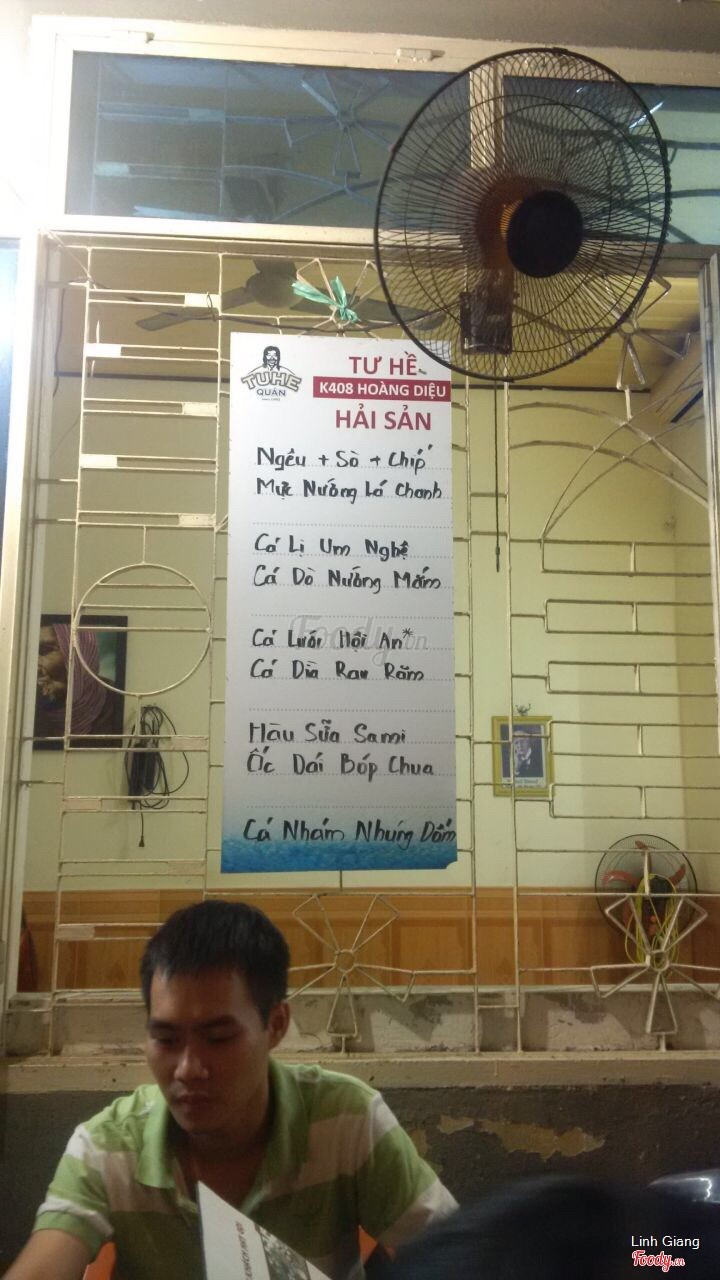 TƯ HỀ
TUHE
QUÁN
K408 HOÀNG DIỆU
HẢI SẢN
Ngêu + Sò + Chíp
Mực Nướng Lá Chanh
Cá Lị Um Nghệ
Cá Dò Nướng Mắm
Cá Lưỡi Hội An*
Cá Dìa Rau Răm
Hàu Sữa Sami
Ốc Dái Bóp Chua
Cá Nhám Nhúng Dấm
Foody.vn
Linh Giang
Foody.vn